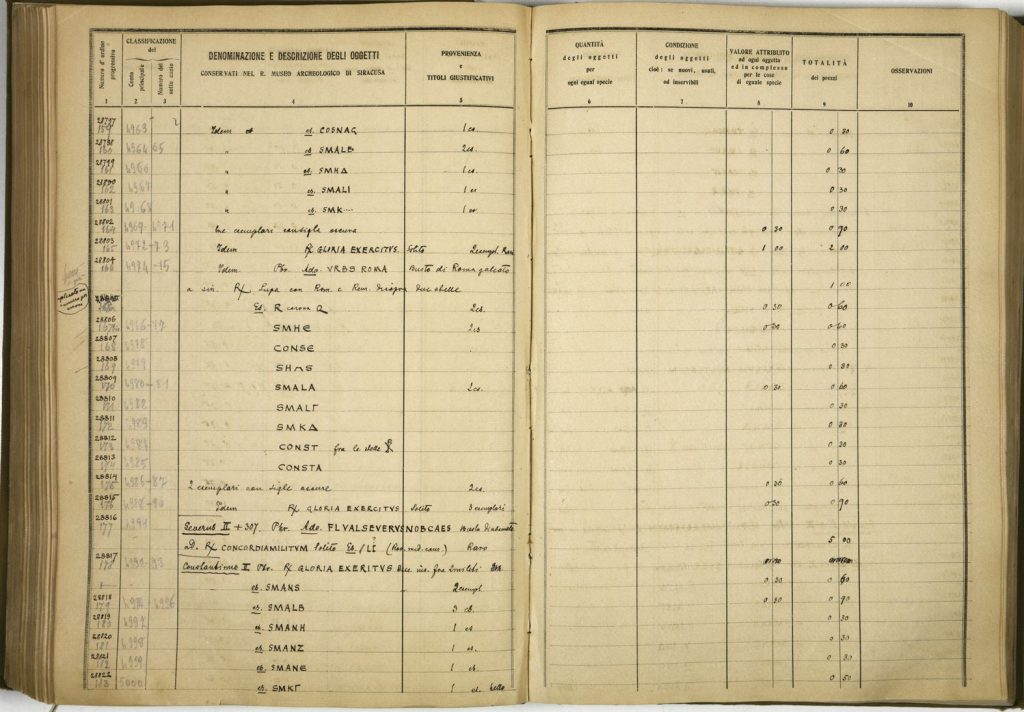 Numero d'ordine progressivo
CLASSIFICAZIONE del
Conto principale
Numero del sotto conto
DENOMINAZIONE E DESCRIZIONE DEGLI OGGETTI
CONSERVATI NEL R. MUSEO ARCHEOLOGICO DI SIRACUSA
PROVENIENZA
e
TITOLI GIUSTIFICATIVI
QUANTITÀ
degli oggetti
per
ogni egual specie
CONDIZIONE
degli oggetti
cioè: se nuovi, usati,
od inservibili
VALORE ATTRIBUITO
ad ogni oggetto
ed in complesso
per le cose
di eguale specie
TOTALITÀ
dei prezzi
OSSERVAZIONI
1 2 3 4 5 6 7 8 9 10
28797 159 4963 Idem es. COSNAG 1 es. 0 30
28798 160 4964 65 " es. SMALB 2 es. 0 60
28799 161 4966 " es. SMHΔ 1 es. 0 30
28800 162 4967 " es. SMALI 1 es 0 30
28801 163 4968 " es. SMK.... 1 es. 0 30
28802 164 4969 4971 tre esemplari con sigla oscura 0 30 0 90
28803 165 4972-73 Idem R/ GLORIA EXERCITVS. Solito 2 esempl. Rari 1 00 2 00
28804 166 4974-75 Idem Pbr. Ado. VRBS ROMA Busto di Roma galeata
a sin. R/ Lupa con Rom. e Rem. disopra due stelle 1 00
Es. R corona Q 2 es. 0 30 0 60
28806 SMHE 2 es 0 30 0 60
28807 168 4978 CONSE 0 30
28808 169 4979 SH 0 30
28809 170 4980-81 SMALA 2 es. 0 30 0 60
28810 171 4982 SMALΓ 0 30
28811 172 SMKΔ 0 30
28812 173 CONST fra le stelle 0 30
28813 174 4985 CONSTA 0 30
28814 175 4986-87 2 esemplari con sigle oscure 2 es. 0 30 0 60
28815 176 4988-90 Idem R/ GLORIA EXERCITVS Solito 3 esemplari 0 30 0 90
28816 177 4991 Severus II + 307. Pbr. Ado. FL VAL SEVERVS NOB CAES Busto
R/ CONCORDIA MILITVM Solito Es. Raro 5 00
28817 178 Constantinus II Pbr. R/ GLORIA EXERITVS
es. SMANS 2 esempl. 0 30 0 60
28818 179 4996 es. SMALB 3 es. 0 30 0 90
28819 180 4997 es. SMANH 1 es 0 30
28820 181 4998 es. SMANZ 1 es. 0 30
28821 182 4999 es. SMANE 1 es. 0 30
28822 183 5000 es. SMKΓ 1 es. 0 50